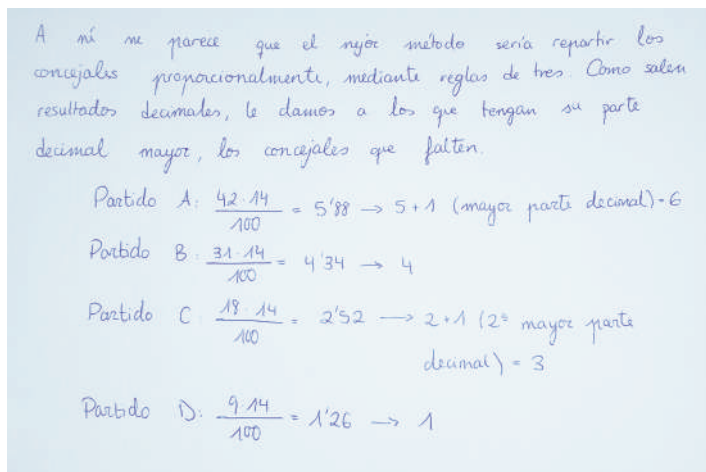 A mí me parece que el mejor método sería repartir los
concejales proporcionalmente, mediante reglas de tres. Como salen
resultados decimales, le damos a los que tengan su parte
decimal mayor, los concejales que falten.
Partido A: 42·14/100 = 5'88 → 5+1 (mayor parte decimal) = 6
Partido B: 31·14/100 = 4'34 → 4
Partido C: 18·14/100 = 2'52 → 2+1 (2º mayor parte
decimal) = 3
Partido D: 9·14/100 = 1'26 → 1